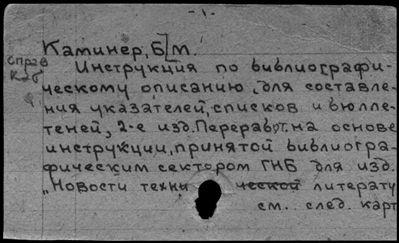 -1-
Каминер, Б[м.
Справ
Каб
Инструкция по библиографи-
ческому описанию, для составле-
ния указателей, списков и бюлле-
теней, 2-е изд. Переработ. на основе
инструкции, принятой библиогра-
фическим сектором ГНБ для изд.
„Новости техни ческой литерату
см. след. карт